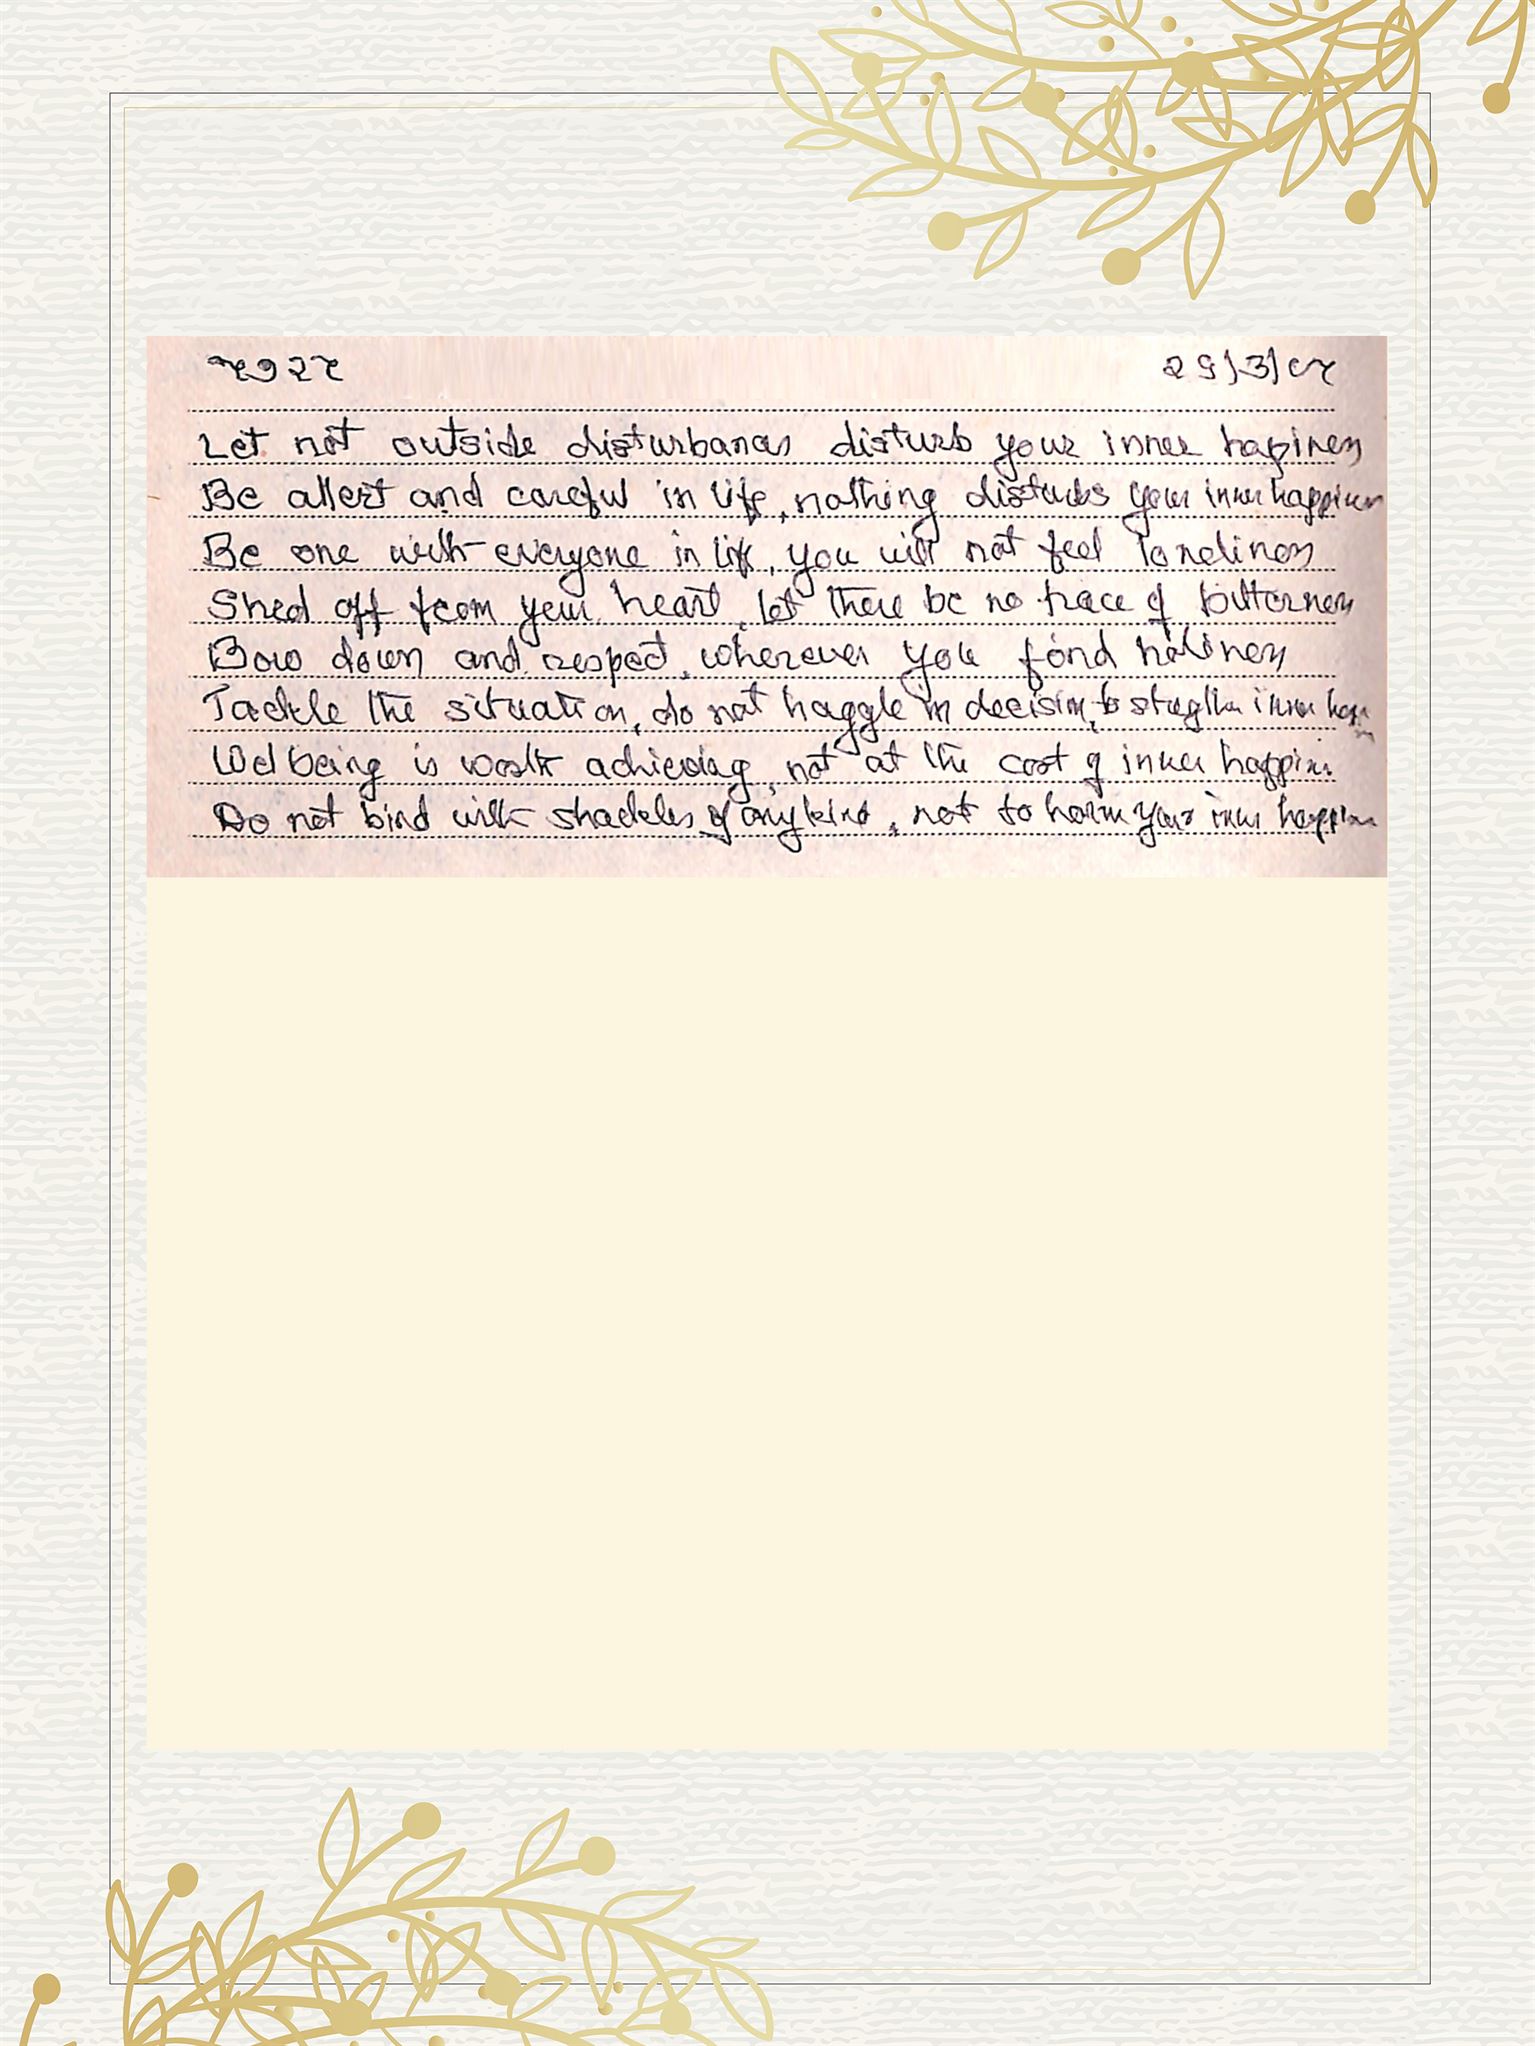 Let not outside disturbances disturb your inner happiness
Be allert and careful in life, nothing disturbs your inner happiness
Be one with everyone in life, you will not feel loneliness
Shed off from your heart, let there be no trace of bitterness
Bow down and respect, wherever you find holiness
Tackle the situation, do not haggle in decision, to inner
Wel being is worth achieving, not at the cost of inner happiness
Do not bind with shackles of any kind, not to harm your inner happiness